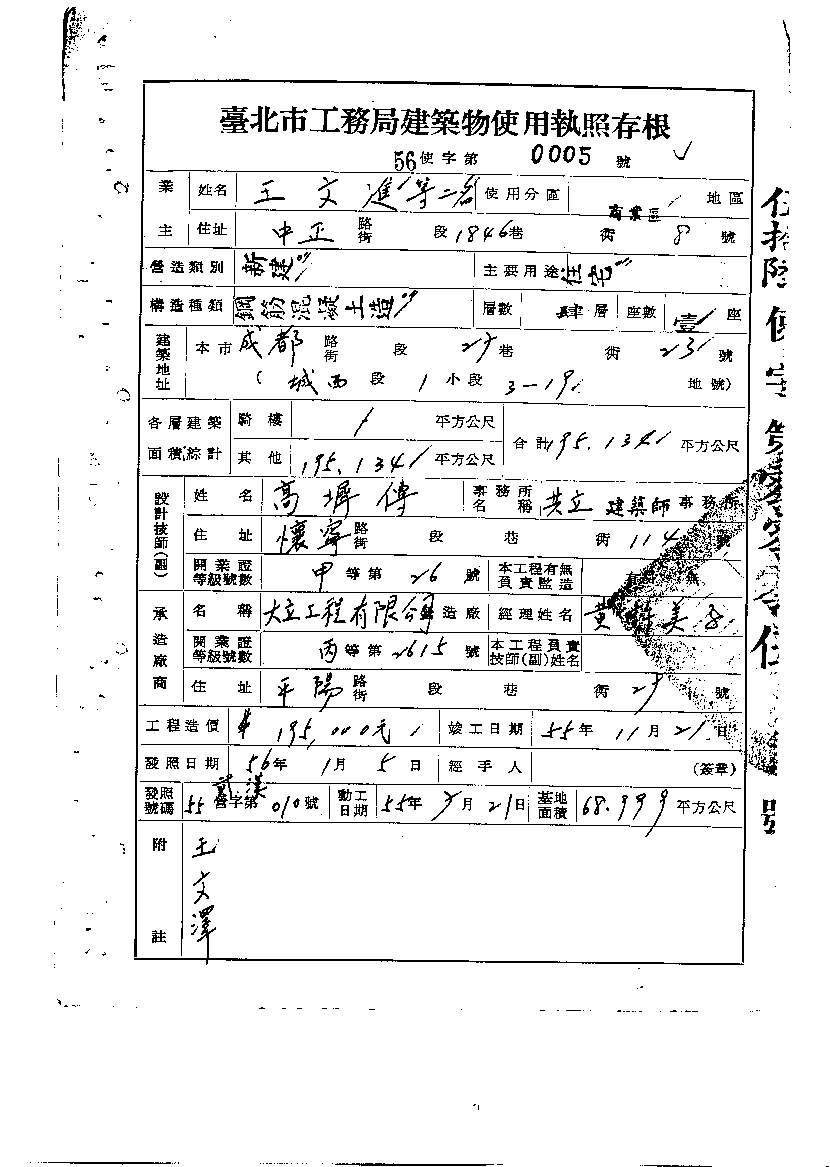 臺北市工務局建築物使用執照存根
56使字第 0005 號
業主 姓名 王文進等二名 使用分區 商業區 地區
住址 中正 路街 段 1846巷 衖 8 號
營造類別 新建 主要用途 住宅
構造種類 鋼筋混凝土造 層數 肆層 座數 壹座
建築地址 本市成都 路街 段 27巷 衖 23 號
(城西段 1 小段 3-19 地號)
各層建築面積綜計 騎樓 / 平方公尺 合計195.134平方公尺
其他 195.134平方公尺
設計技師(副) 姓名 高墀傳 事務所名稱 共立建築師事務所
住址 懷寧 路街 段 巷 衖 114 號
開業證等級號數 甲等第 26 號 本工程有無負責監造
承造廠商 名稱 大立工程有限公司 造廠 經理姓名 黃 美
開業證等級號數 丙等第 2615 號 本工程負責技師(副)姓名
住址 平陽 路街 段 巷 衖 號
工程造價 195,000元 竣工日期 55年 11月 21日
發照日期 56年 1月 5日 經手人 (簽章)
發照號碼 55 營字第 010號 動工日期 55年 月 21日 基地面積 68.999平方公尺
附註 王文澤